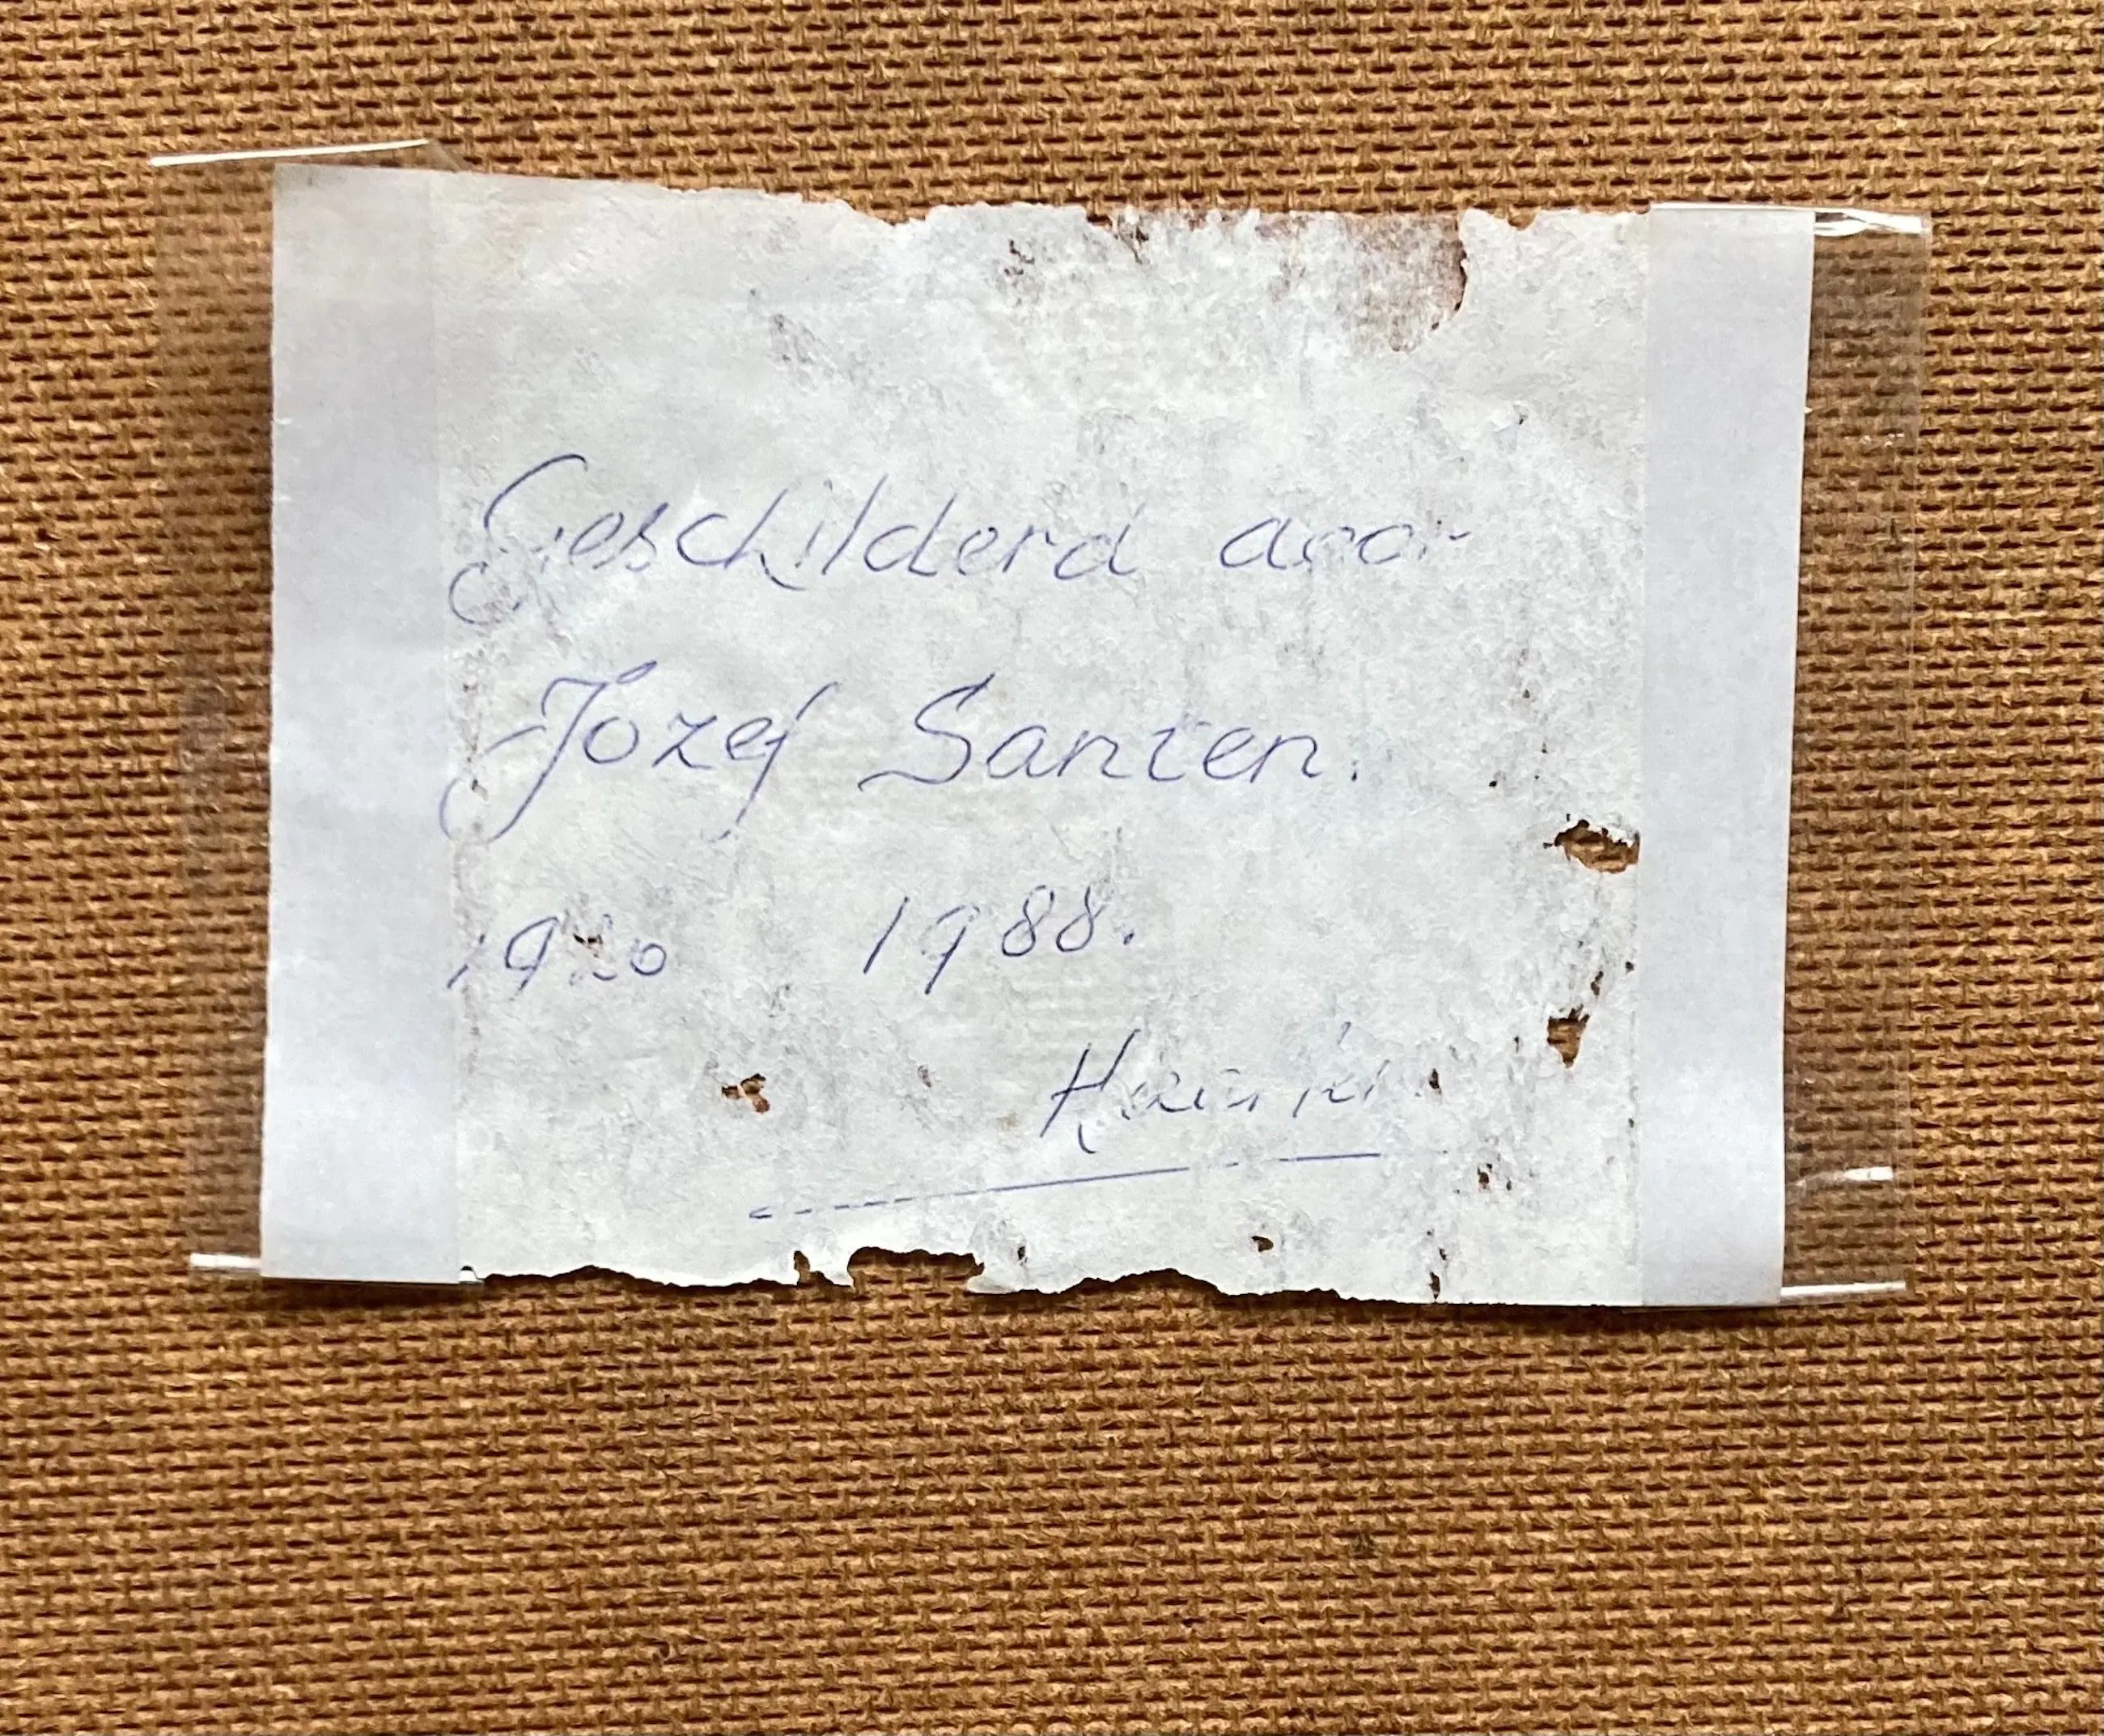 Geschilderd door
Jozef Santen.
1920 1988.